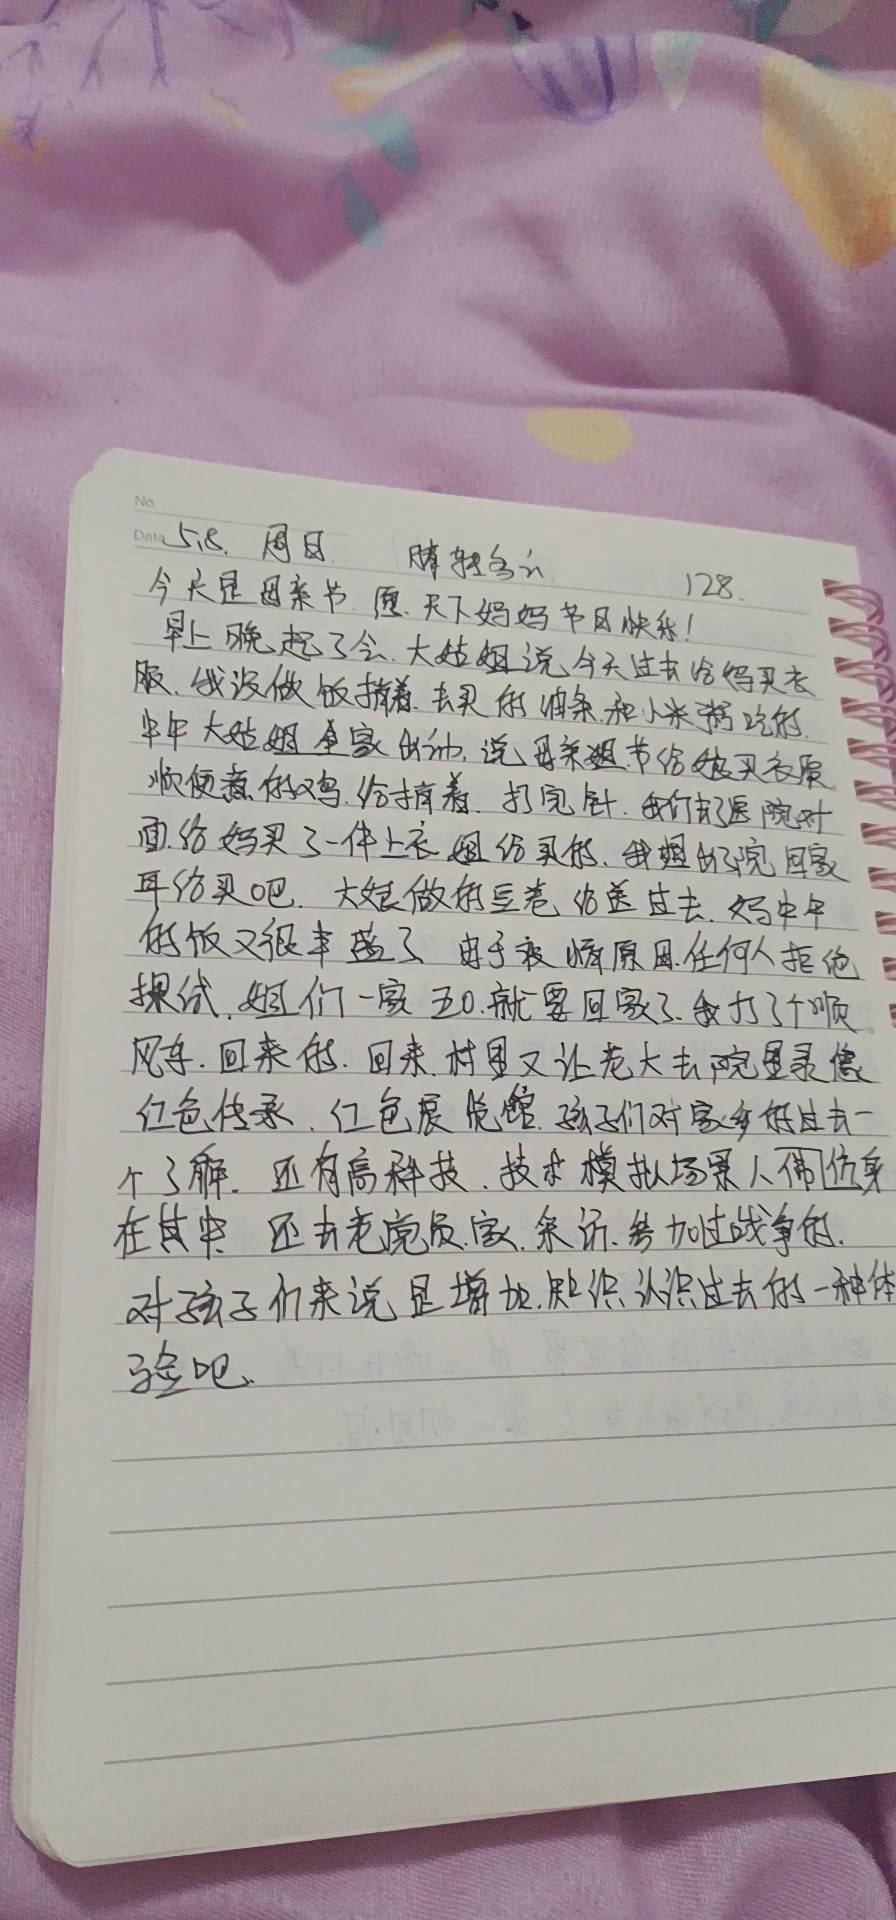 No
Date 5.8. 周日 阵转多云 128.
今天是母亲节. 愿. 天下妈妈节日快乐!
早上晚起了会. 大姑姐说今天过去给妈买衣
服. 我没做饭捎着. 去买的油条. 和小米粥吃的.
中午大姑姐全家出动. 说母亲节给娘买衣服
顺便煮的鸡. 给捎着. 打完针. 我们去了医院对
面. 给妈买了一件上衣 姐给买的. 我姐出了院回家
再给买吧. 大娘做的豆卷 给送过去. 妈中午
的饭又很丰盛了 由于疫情原因. 任何人拒绝
探试. 姐们一家五口. 就要回家了. 我打了个顺
风车. 回来的. 回来. 村里又让老大去院里录像
红色传承. 红色展览馆. 孩子们对家乡的过去一
个了解. 还有高科技. 技术模拟场景人佛仿身
在其中 还去老党员. 家. 采访. 参加过战争的.
对孩子们来说是增加. 知识认识过去的一种体
验吧.